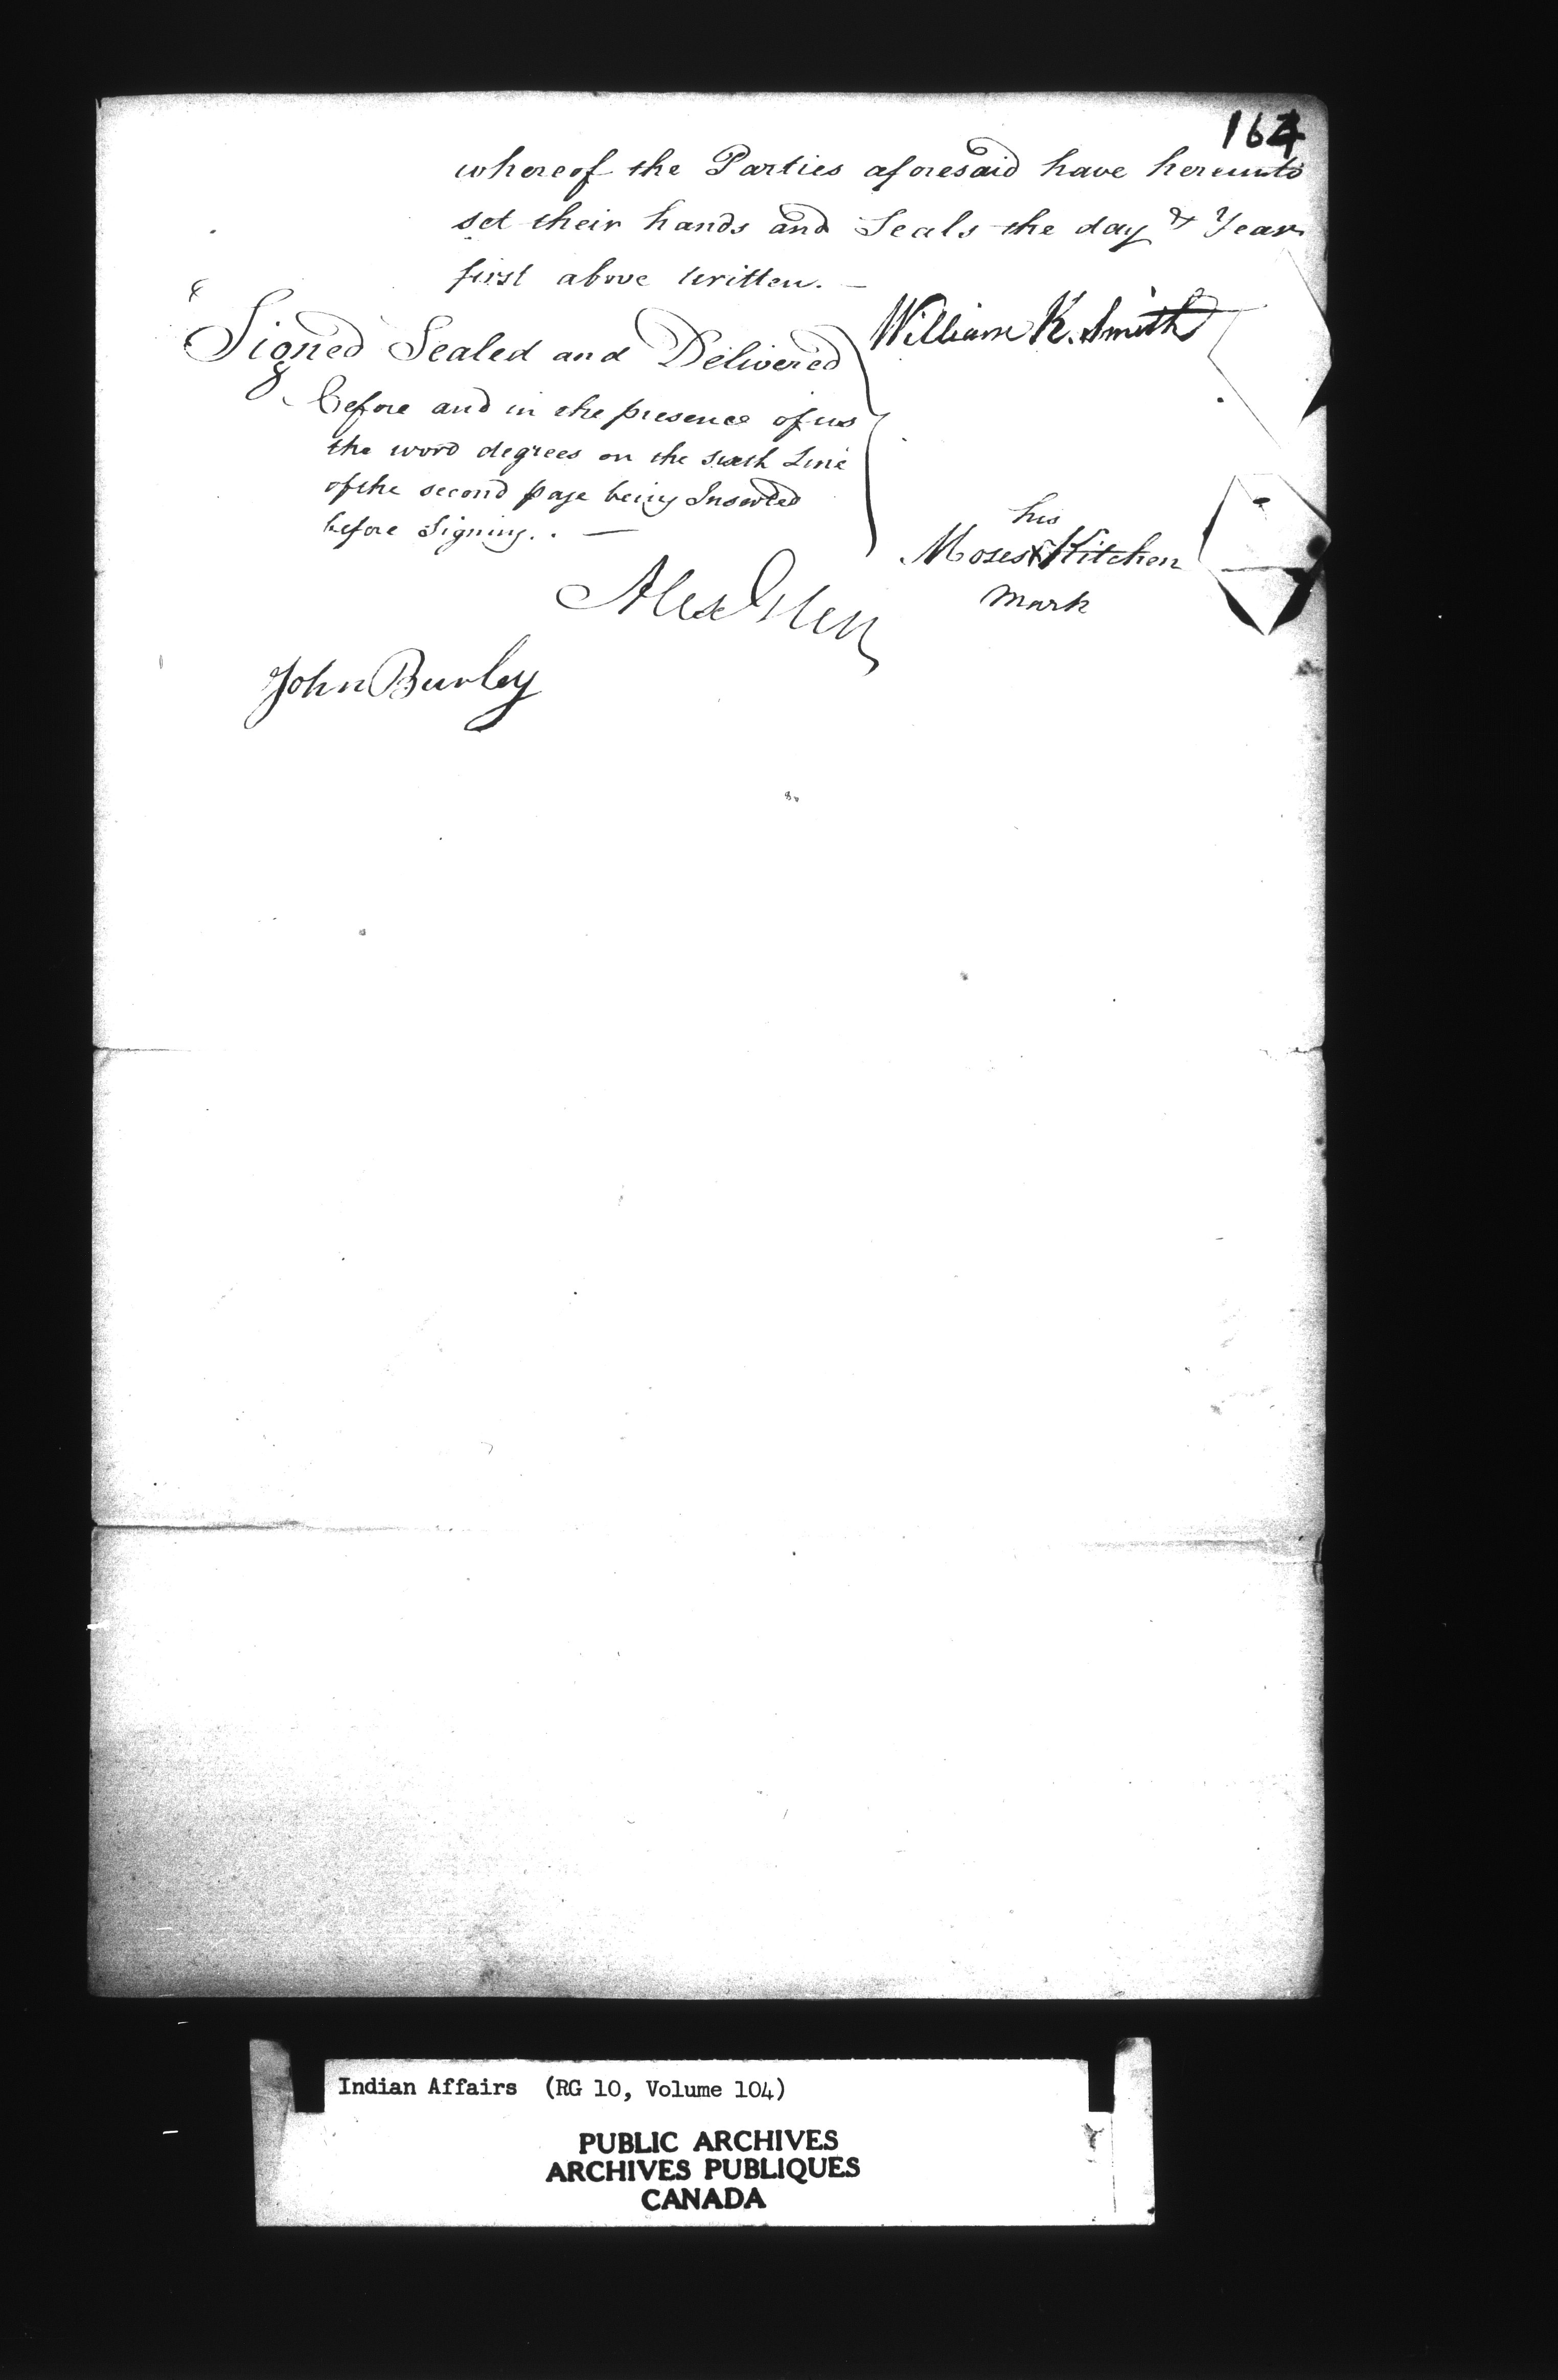 164
whereof the Parties aforesaid have hereunto
set their hands and Seals the day & Year
first above written. —
Signed Sealed and Delivered
before and in the presence of us
the word degrees on the sixth Line
of the second page being Inserted
before Signing. . —
William K. Smith
his
Moses X Kitchen
Mark
Alex
John Burley
Indian Affairs (RG 10, Volume 104)
PUBLIC ARCHIVES
ARCHIVES PUBLIQUES
CANADA